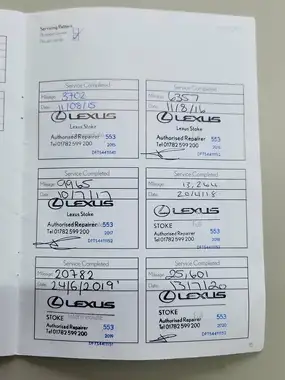 Servicing Record
Service Completed
Mileage 3702
Date 11/08/15
LEXUS
Lexus Stoke
Authorised Repairer 553
Tel 01782 599 200 2015
Service Completed
Mileage 6357
Date 11/8/16
LEXUS
Lexus Stoke
Authorised Repairer 553
Tel 01782 599 200
Service Completed
Mileage 9965
Date 10/7/17
LEXUS
Lexus Stoke
Authorised Repairer 553
Tel 01782 599 200 2017
Service Completed
Mileage 13,264
Date 20/4/18
LEXUS
STOKE
Authorised Repairer 553
Tel 01782 599 200 2018
Service Completed
Mileage 20782
Date 24/6/2019
LEXUS
STOKE
Authorised Repairer 553
Tel 01782 599 200 2019
Service Completed
Mileage 25,601
Date 13/7/20
LEXUS
STOKE
Authorised Repairer 553
Tel 01782 599 200 2020